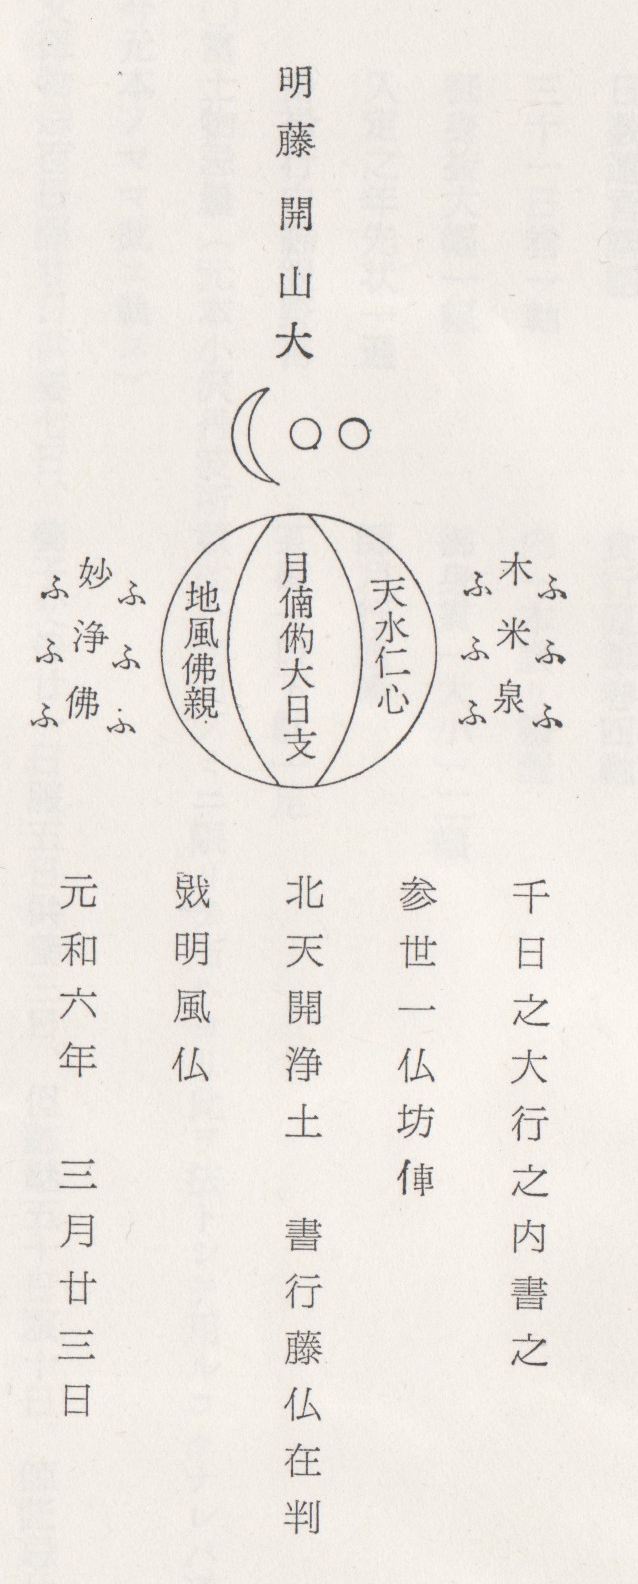 明藤開山大
ふふふ
木米泉
ふふふ
天水仁心
月大日支
地風佛親
ふふふ
妙浄佛
ふふふ
千日之大行之内書之
参世一仏坊俥
北天開浄土　書行藤仏在判
明風仏
元和六年　三月廿三日